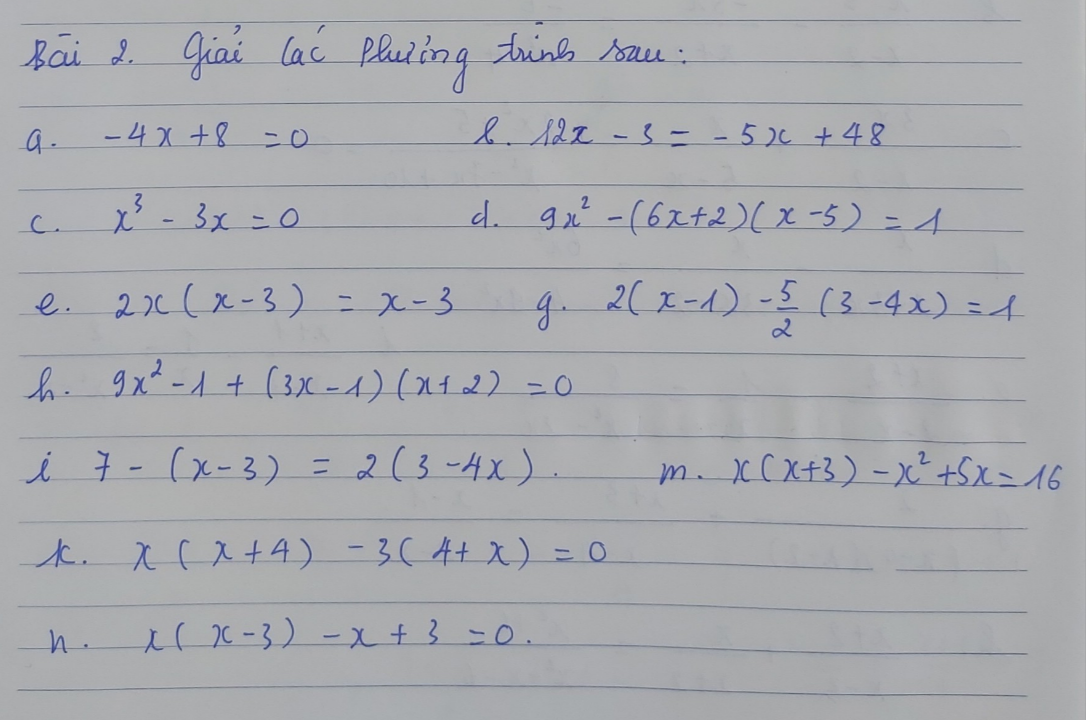 Bài 2. Giải các phương trình sau:
a. -4x + 8 = 0 b. 12x - 3 = -5x + 48
c. x³ - 3x = 0 d. 9x² - (6x+2)(x-5) = 1
e. 2x(x-3) = x-3 g. 2(x-1) - 5/2 (3-4x) = 1
h. 9x² - 1 + (3x-1)(x+2) = 0
i 7 - (x-3) = 2(3-4x). m. x(x+3) - x² + 5x = 16
k. x(x+4) - 3(4+x) = 0
n. x(x-3) - x + 3 = 0.